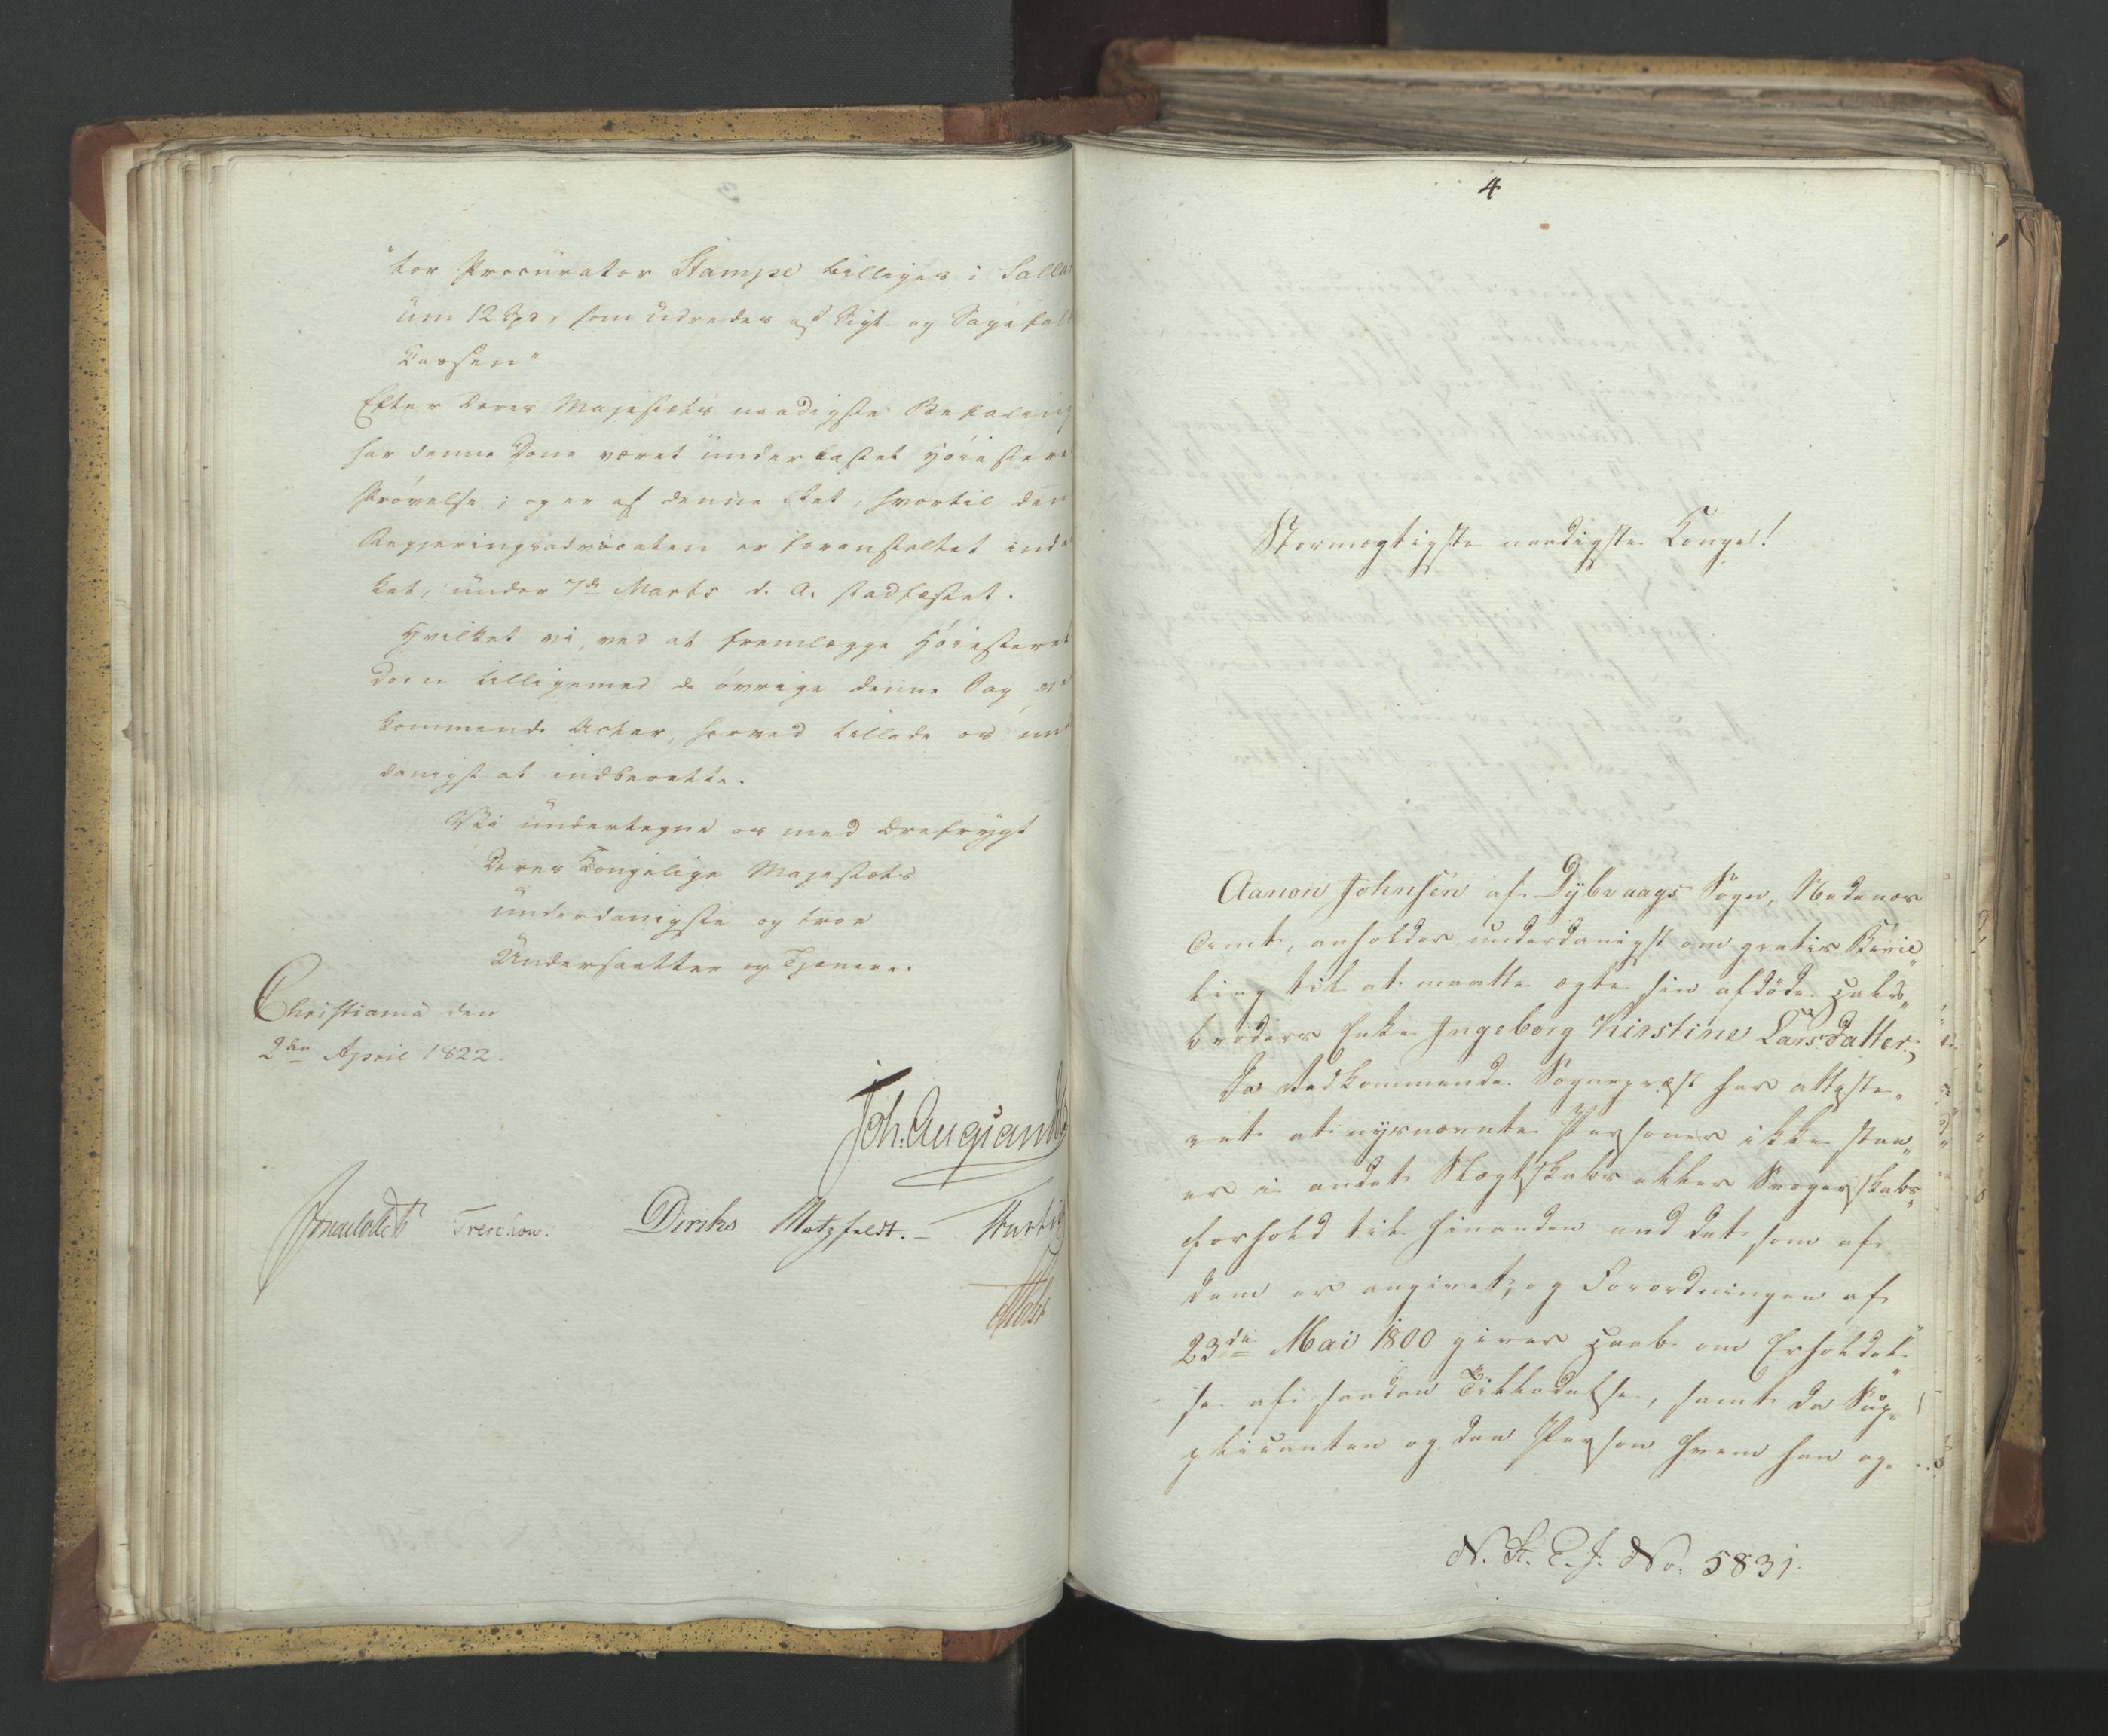 tor Procurator Stampe billiges i Salla
um 12 Spd, som udredes af Sigt- og Sagefalds
Kassen"
Efter Deres Majestæts naadigste Befaling
har denne Dom været underkastet Høiesterets
Prøvelse; og er af denne Ret, hvortil den
Regjeringsadvocaten er foranstaltet ind
ket, under 7de Marts d. A. stadfæstet.
Hvilket vi, ved at fremlægge Høiesterets
Dom tilligemed de øvrige denne Sag ved
kommende Acter, herved tillade os un
danigst at indberette.
Vi undertegne os med Ærefrygt
Deres Kongelige Majestæts
underdanigste og troe
Undersaatter og Tjenere.
Christiania den
2den April 1822.
Joh. Collett Treschow. Diriks Motzfeldt. –
Holst
4
Stormægtigste naadigste Konge!
Aanon Johnsen af Dybvaags Sogn, Nedenæs
Amt, anholder underdanigst om gratis Bevil„
ling til at maatte ægte sin afdøde Halv„
broders Enke Ingeborg Kirstine Larsdatter,
Da Vedkommende Sognepræst har atteste„
ret at nysnævnte Personer ikke staa„
er i andet Slægtskabs eller Svogerskabs„
forhold til hinanden end det som af
dem er angivet, og Forordningen af
23de Mai 1800 giver Haab om Erholdel„
se af saadan Tilladelse, samt da Sup„
plicanten og den Person hvem han ag„
N. R. E. J. No. 5831.